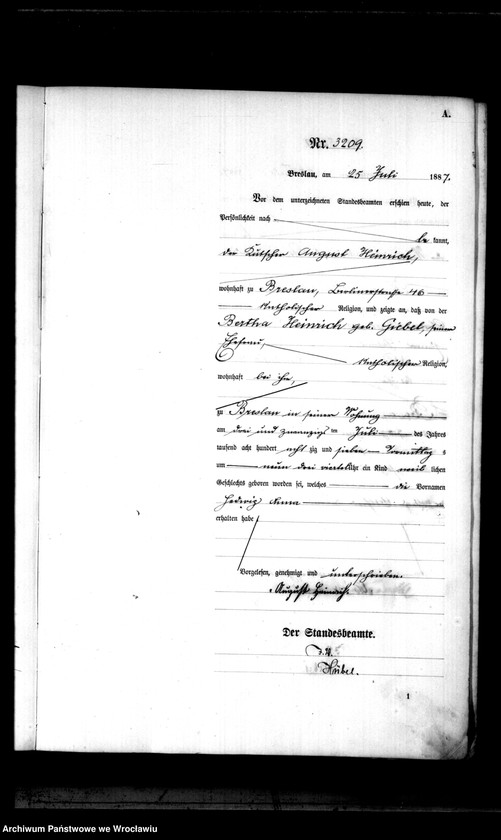 A.
Nr. 3209.
Breslau, am 25 Juli 1887.
Vor dem unterzeichneten Standesbeamten erschien heute, der
Persönlichkeit nach
be kannt,
der Kutscher August Heinrich,
wohnhaft zu Breslau, Berlinerstraße 46
katholischer Religion, und zeigte an, daß von der
Bertha Heinrich geb. Giebel, seiner
Ehefrau,
katholischer Religion,
wohnhaft bei ihm,
zu Breslau in seiner Wohnung
am drei und zwanzigs ten Juli des Jahres
tausend acht hundert acht zig und sieben Vormittag s
um neun drei viertel Uhr ein Kind weib lichen
Geschlechts geboren worden sei, welches die Vornamen
Hedwig Anna
erhalten habe
Vorgelesen, genehmigt und unterschrieben.
August Heinrich.
Der Standesbeamte.
Hübel.
1
Archiwum Państwowe we Wrocławiu